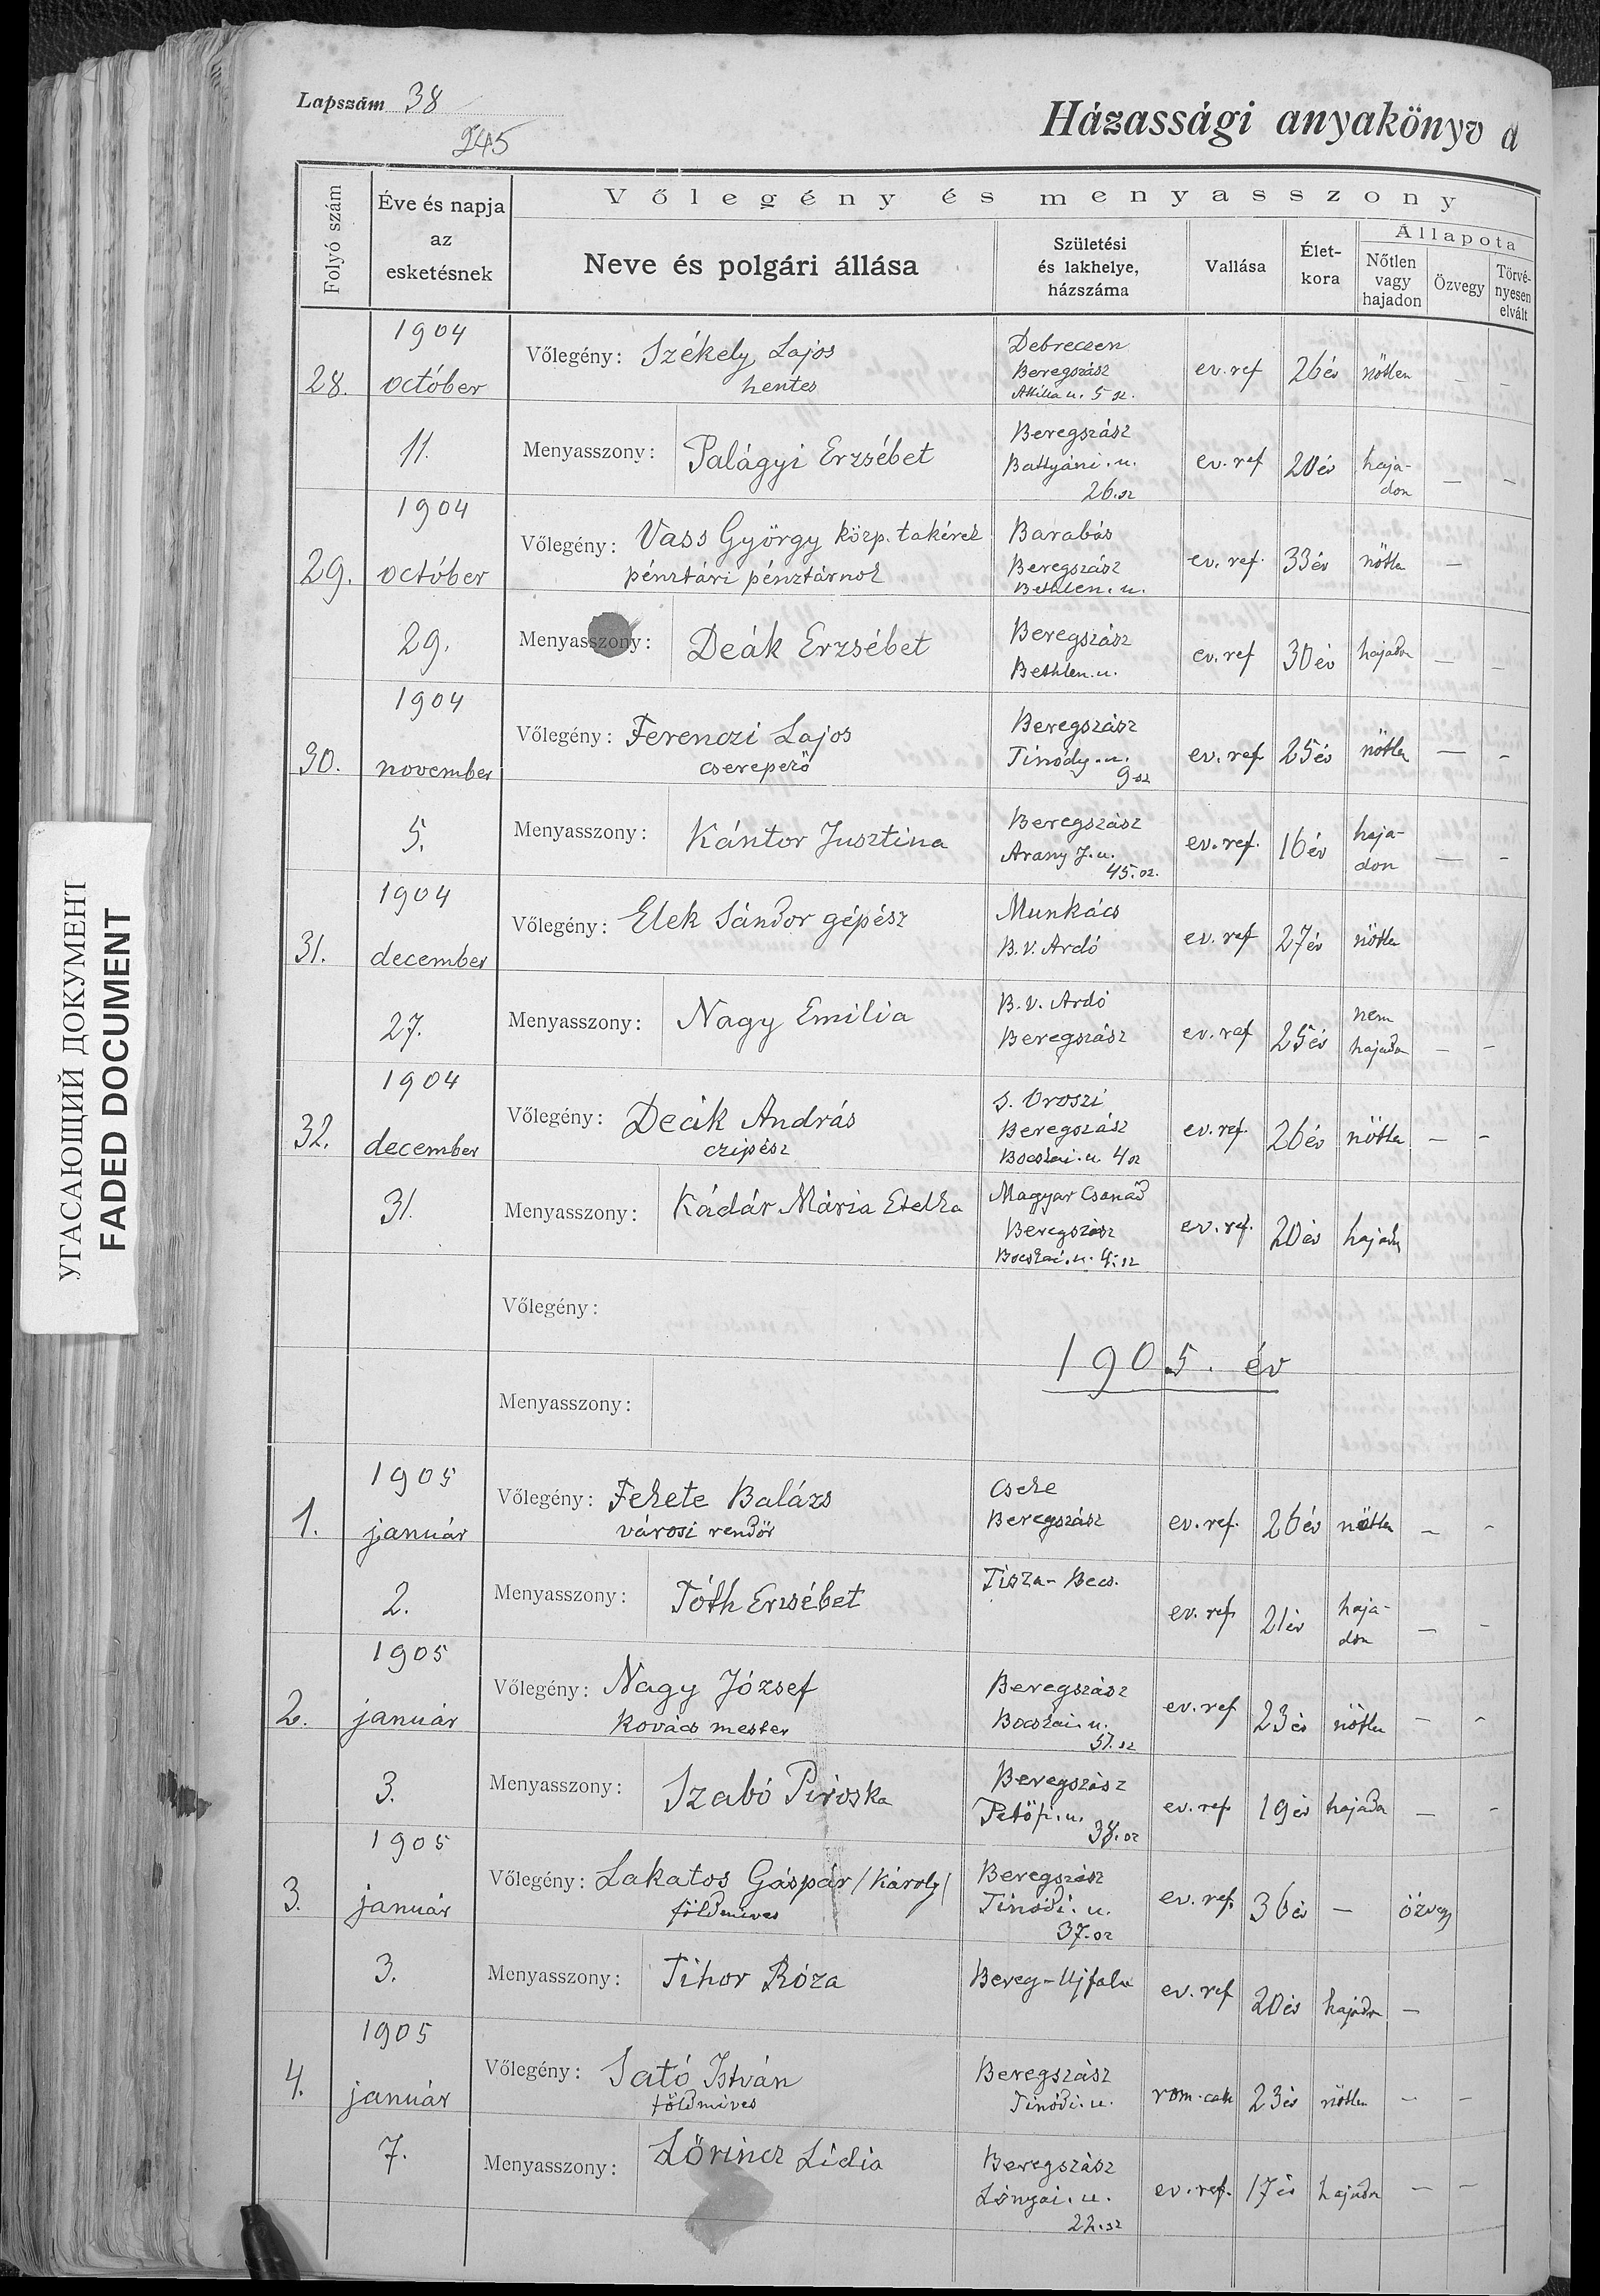 Lapszám 38
245
Házassági anyakönyv a
Folyó szám
Éve és napja
az
esketésnek
Vőlegény és menyasszony
Neve és polgári állása
Születési
és lakhelye,
házszáma
Vallása
Élet-
kora
Állapota
Nőtlen
vagy
hajadon
Özvegy
Törvé-
nyesen
elvált
28.
1904
október
11.
Vőlegény: Székely Lajos
hentes
Debreczen
Beregszász
Attilla u. 5 sz.
ev. ref
26 év
nőtlen
— —
Menyasszony: Palágyi Erzsébet
Beregszász
Battyáni. u.
26. sz
ev. ref
20 év
haja-
don
— —
29.
1904
október
29.
Vőlegény: Vass György közp. takárék
pénztári pénztárnok
Barabás
Beregszász
Bethlen. u.
ev. ref.
33 év
nőtlen
—
Menyasszony: Deák Erzsébet
Beregszász
Bethlen. u.
ev. ref
30 év
hajadon
— —
30.
1904
november
5.
Vőlegény: Ferenczi Lajos
cserepező
Beregszász
Tinódy. u.
9 sz
ev. ref
25 év
nőtlen
— —
Menyasszony: Kántor Jusztina
Beregszász
Arany J. u.
45. sz.
ev. ref.
16 év
haja-
don
— —
31.
1904
december
27.
Vőlegény: Elek Sándor gépész
Munkács
B. V. Ardó
ev. ref
27 év
nőtlen
Menyasszony: Nagy Emilia
B. V. Ardó
Beregszász
ev. ref
25 év
nem
hajadon
— —
32.
1904
december
31.
Vőlegény: Deák András
czipész
S. Oroszi
Beregszász
Bocskai. u. 4 sz
ev. ref.
26 év
nőtlen
— —
Menyasszony: Kádár Mária Etelka
Magyar Csanád
Beregszász
Bocskai. u. 4. sz
ev. ref.
20 év
hajadon
Vőlegény:
1905. év
Menyasszony:
1.
1905
január
2.
Vőlegény: Fekete Balázs
városi rendőr
Cseke
Beregszász
ev. ref.
26 év
nőtlen
— —
Menyasszony: Tóth Erzsébet
Tisza-Becs.
ev. ref.
21 év
haja-
don
— —
2.
1905
január
3.
Vőlegény: Nagy József
Kovács mester
Beregszász
Bocskai. u.
51. sz
ev. ref
23 év
nőtlen
— —
Menyasszony: Szabó Piroska
Beregszász
Petőfi. u.
38. sz
ev. ref.
19 év
hajadon
— —
3.
1905
január
3.
Vőlegény: Lakatos Gáspár /Károly/
földmíves
Beregszász
Tinódi. u.
37. sz
ev. ref.
36 év
—
özvegy
Menyasszony: Tihor Róza
Bereg-Ujfalu
ev. ref
20 év
hajadon
—
4.
1905
január
7.
Vőlegény: Sató István
földmíves
Beregszász
Tinódi. u.
rom. cath
23 év
nőtlen
— —
Menyasszony: Lőrincz Lidia
Beregszász
Lónyai. u.
22. sz
ev. ref.
17 év
hajadon
— —
УГАСАЮЩИЙ ДОКУМЕНТ
FADED DOCUMENT